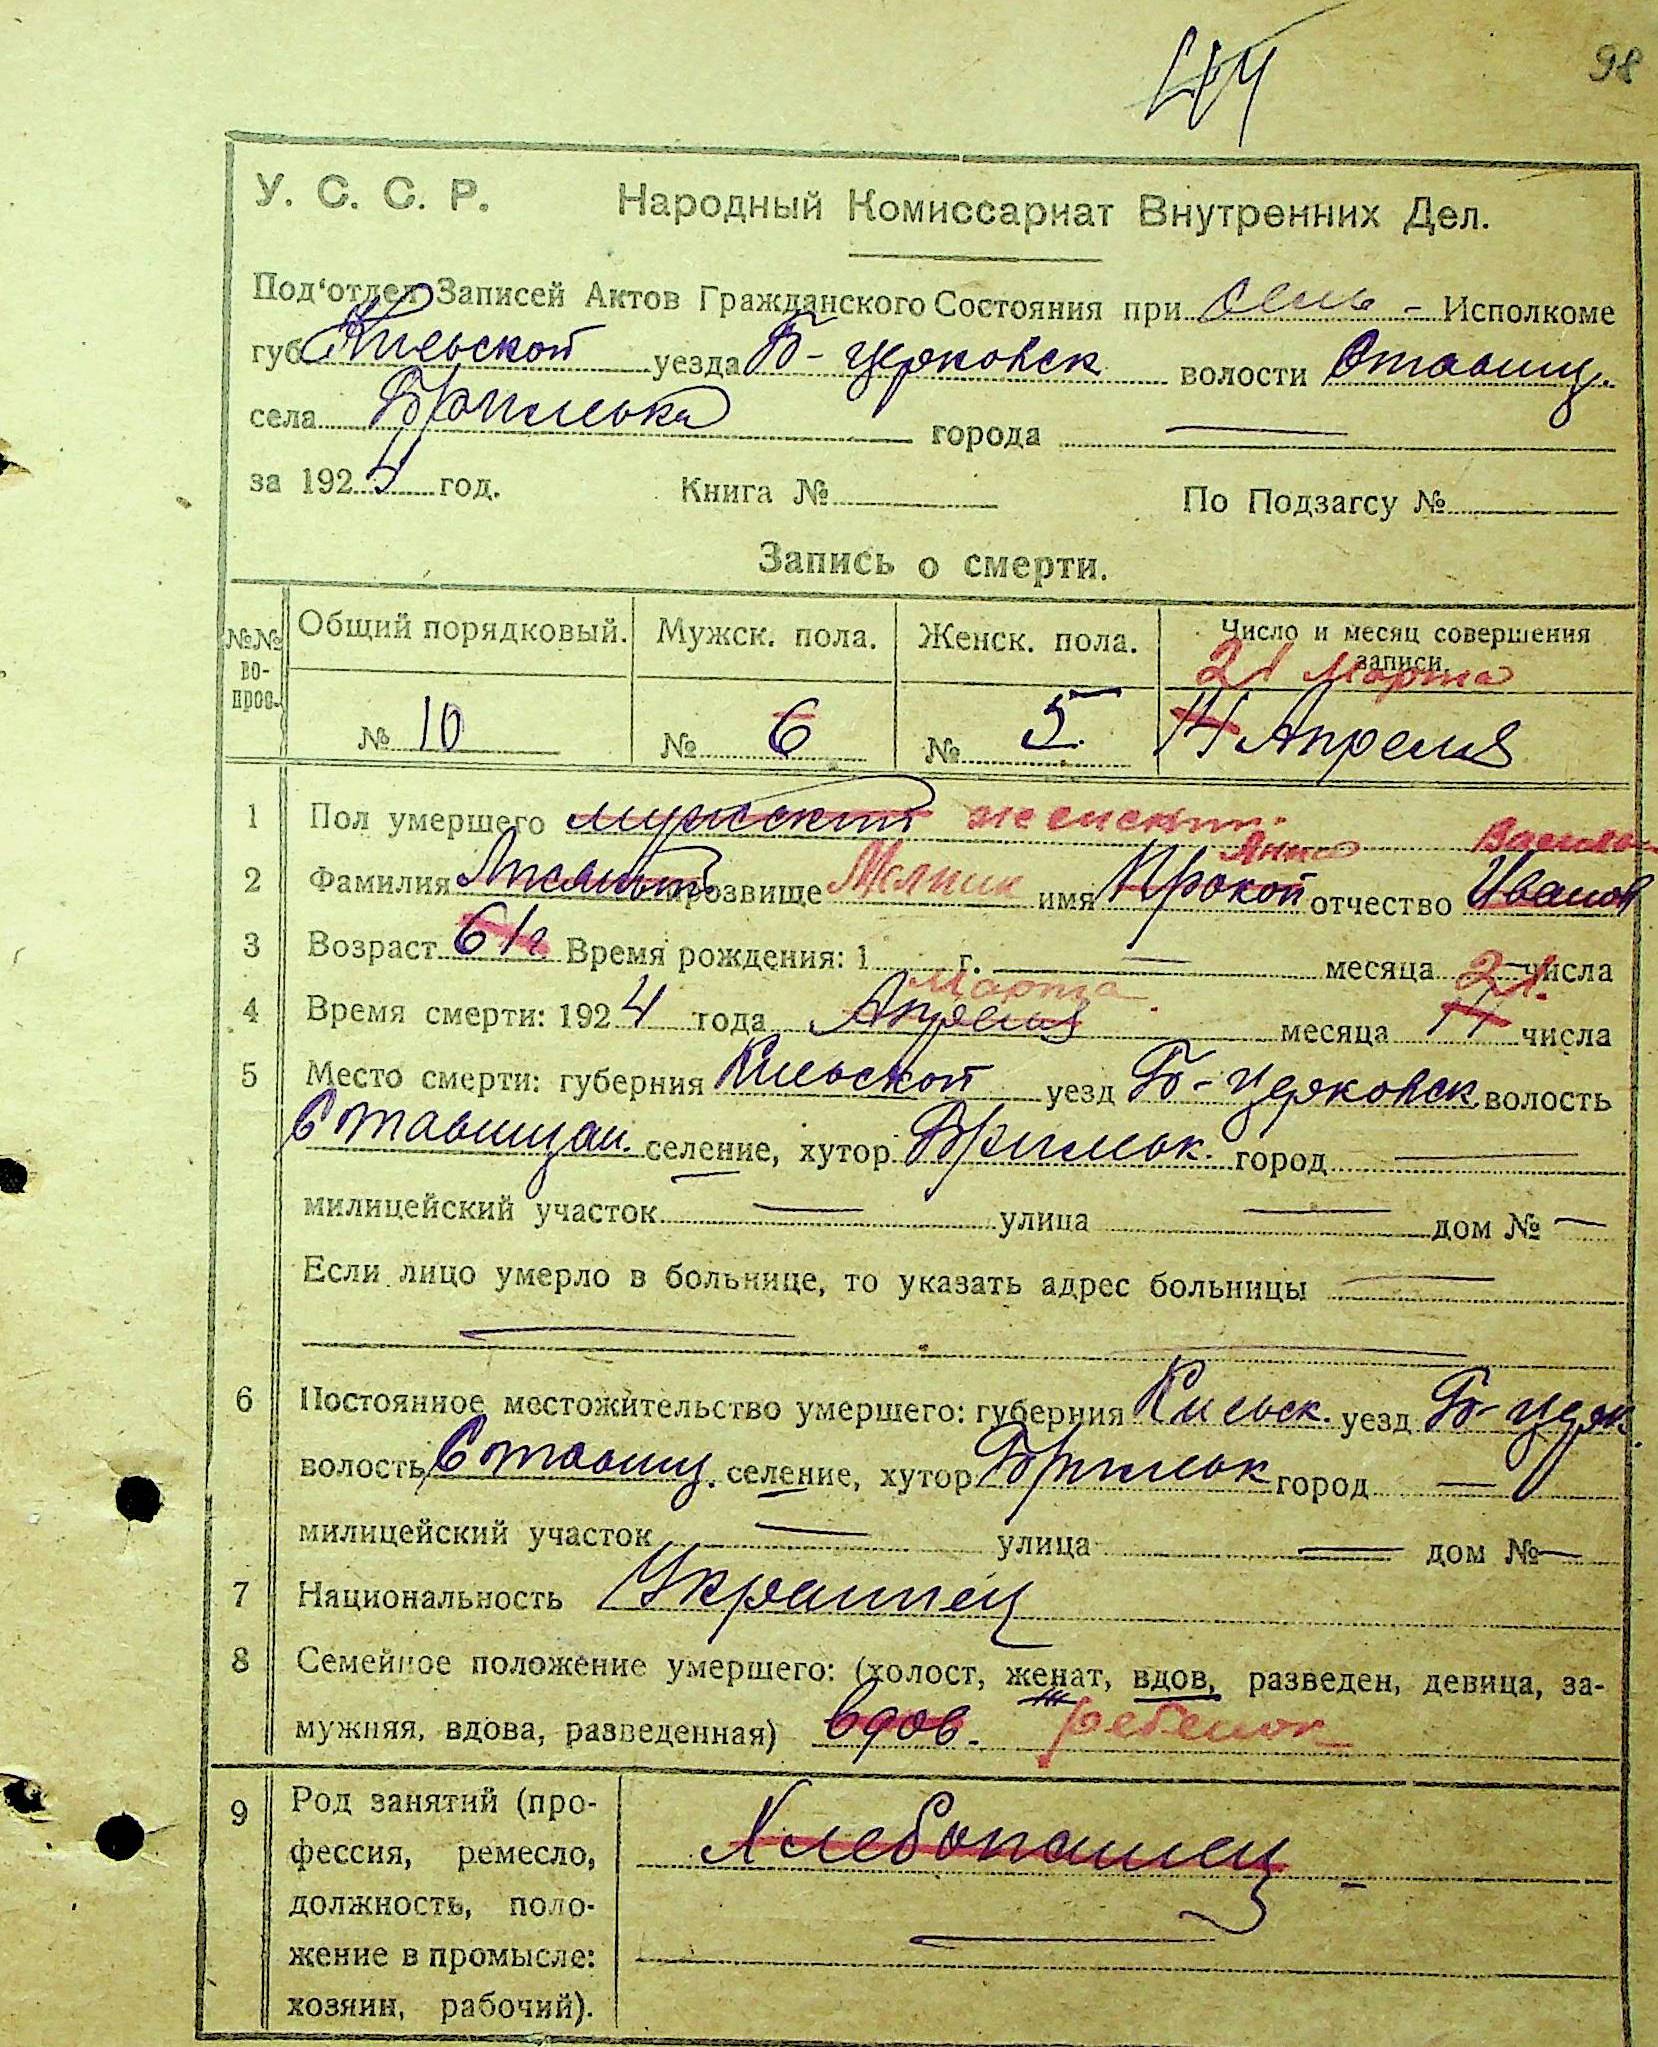 98
У. С. С. Р. Народный Комиссариат Внутренних Дел.
Под‘отдел Записей Актов Гражданского Состояния при сель - Исполкоме
губ Киевской уезда Б-церковск волости Ставищ.
села города —
за 1924 год. Книга № По Подзагсу №
Запись о смерти.
№№ во-прос. Общий порядковый. Мужск. пола. Женск. пола. Число и месяц совершения записи.
21 Марта
№ 10 № 6 № 5 14 Апреля
1 Пол умершего мужской женский.
Анна Василь-
2 Фамилия прозвище Мельник имя Прокоп отчество Иванов
3 Возраст 61 г. Время рождения: 1 г. — месяца — числа
Марта 21.
4 Время смерти: 1924 года Апреля месяца 14 числа
5 Место смерти: губерния Киевской уезд Б-Церковск волость
Ставищан. селение, хутор город —
милицейский участок — улица — дом № —
Если лицо умерло в больнице, то указать адрес больницы —
6 Постоянное местожительство умершего: губерния Киевск. уезд Б-церк.
волость Ставищ. селение, хутор город —
милицейский участок — улица — дом № —
7 Национальность Украинец
8 Семейное положение умершего: (холост, женат, вдов, разведен, девица, за-
мужняя, вдова, разведенная) вдов. ребенок
9 Род занятий (про-
фессия, ремесло, Хлебопашец
должность, поло-
жение в промысле:
хозяин, рабочий).